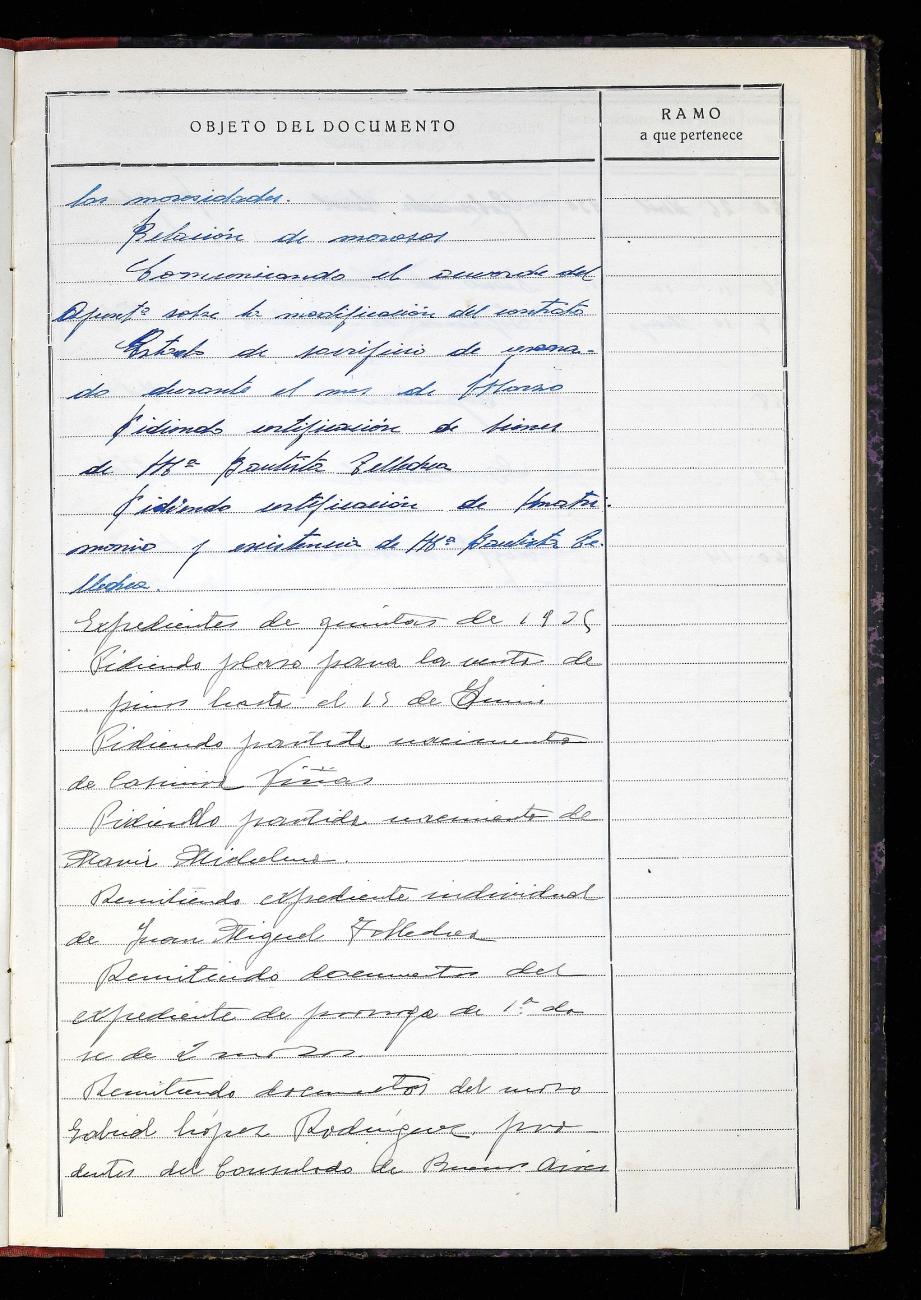 OBJETO DEL DOCUMENTO
RAMO
a que pertenece
las morosidades.
Relación de morosos
Comunicando el acuerdo del
Ayuntº sobre la modificación del contrato
Estado de sacrificio de gana-
do durante el mes de Marzo
Pidiendo certificación de bienes
de Mª Bautista Tellechea
Pidiendo certificación de matri-
monio y existencia de Mª Bautista Te-
llechea.
Expedientes de quintas de 1935
Pidiendo plazo para la venta de
pinos hasta el 15 de Junio
Pidiendo partida nacimiento
de Casimira Viñas
Pidiendo partida nacimiento de
Remitiendo expediente individual
de Juan Miguel Tellechea
Remitiendo documentos del
expediente de prorroga de 1ª cla
se de 2 mozos.
Remitiendo documentos del mozo
Gabriel López Rodríguez, pro-
dentes del Consulado de Buenos Aires